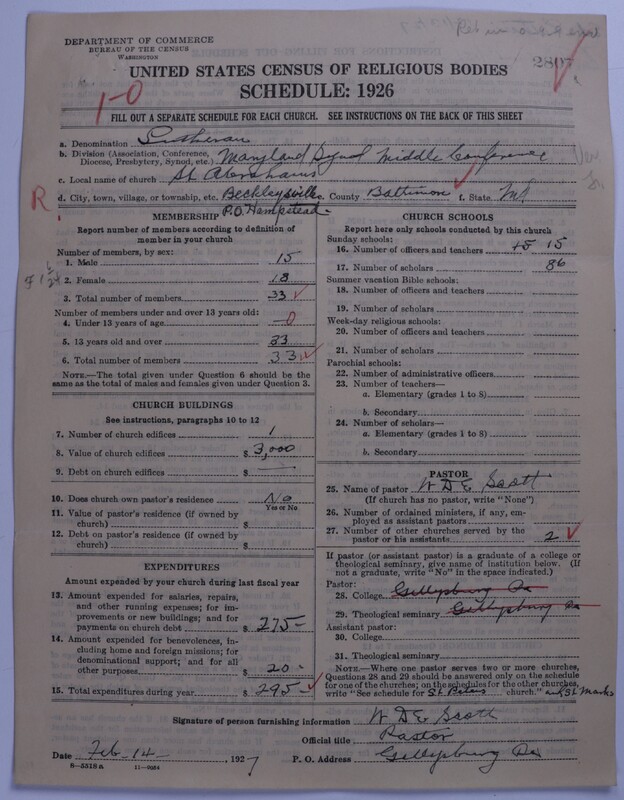 DEPARTMENT OF COMMERCE
BUREAU OF THE CENSUS
WASHINGTON
UNITED STATES CENSUS OF RELIGIOUS BODIES
SCHEDULE: 1926
1-0
FILL OUT A SEPARATE SCHEDULE FOR EACH CHURCH. SEE INSTRUCTIONS ON THE BACK OF THIS SHEET
a. Denomination Lutheran
b. Division (Association, Conference, Diocese, Presbytery, Synod, etc.) Maryland Synod Middle Conference
c. Local name of church St Abrahams
d. City, town, village, or township, etc. Beckleysville e. County Baltimore f. State Md
P.O. Hampstead
R
MEMBERSHIP
Report number of members according to definition of
member in your church
Number of members, by sex:
1. Male 15
2. Female 18
3. Total number of members 33
Number of members under and over 13 years old:
4. Under 13 years of age 0
5. 13 years old and over 33
6. Total number of members 33
NOTE.—The total given under Question 6 should be
same as the total of males and females given under Question 3.
CHURCH BUILDINGS
See instructions, paragraphs 10 to 12
7. Number of church edifices 1
8. Value of church edifices $ 3,000
9. Debt on church edifices $ —
10. Does church own pastor's residence No
Yes or No
11. Value of pastor's residence (if owned by
church) $
12. Debt on pastor's residence (if owned by
church) $
EXPENDITURES
Amount expended by your church during last fiscal year
13. Amount expended for salaries, repairs,
and other running expenses; for im-
provements or new buildings; and for
payments on church debt $ 275-
14. Amount expended for benevolences, in-
cluding home and foreign missions; for
denominational support; and for all
other purposes $ 20-
15. Total expenditures during year $ 295-
CHURCH SCHOOLS
Report here only schools conducted by this church
Sunday schools:
16. Number of officers and teachers 15
17. Number of scholars 86
Summer vacation Bible schools:
18. Number of officers and teachers
19. Number of scholars
Week-day religious schools:
20. Number of officers and teachers
21. Number of scholars
Parochial schools:
22. Number of administrative officers
23. Number of teachers—
a. Elementary (grades 1 to 8)
b. Secondary
24. Number of scholars—
a. Elementary (grades 1 to 8)
b. Secondary
PASTOR
25. Name of pastor W D E Scott
(If church has no pastor, write "None")
26. Number of ordained ministers, if any, em-
ployed as assistant pastors
27. Number of other churches served by the
pastor or his assistants 2
If pastor (or assistant pastor) is a graduate of a college or
theological seminary, give name of institution below. (If
not a graduate, write "No" in the space indicated.)
Pastor:
28. College Gettysburg Pa
29. Theological seminary Gettysburg Pa
Assistant pastor:
30. College
31. Theological seminary
NOTE.—Where one pastor serves two or more churches,
Questions 28 and 29 should be answered only on the schedule
for one of the churches; on the schedules for the other churches,
write "See schedule for St. Peters church." and St Marks
Signature of person furnishing information W D E Scott
Official title Pastor
Date Feb-14-, 1927 P. O. Address Gettysburg Pa
8-5518 a 11-9084